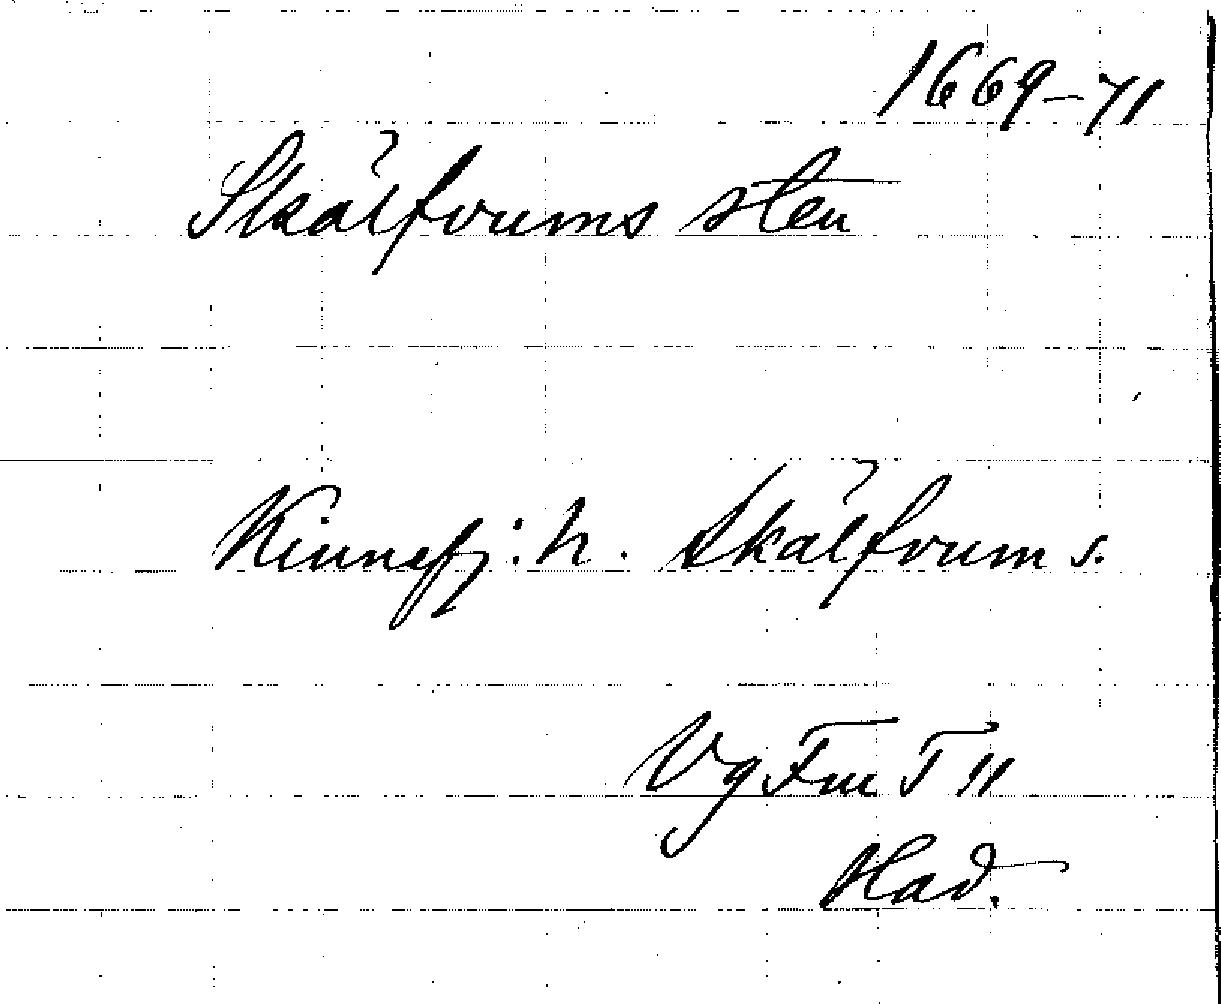 1669-71
Skälfvums sten
Kinnefj: h. Skälfvum s.
Vg Fm T 11
Had.